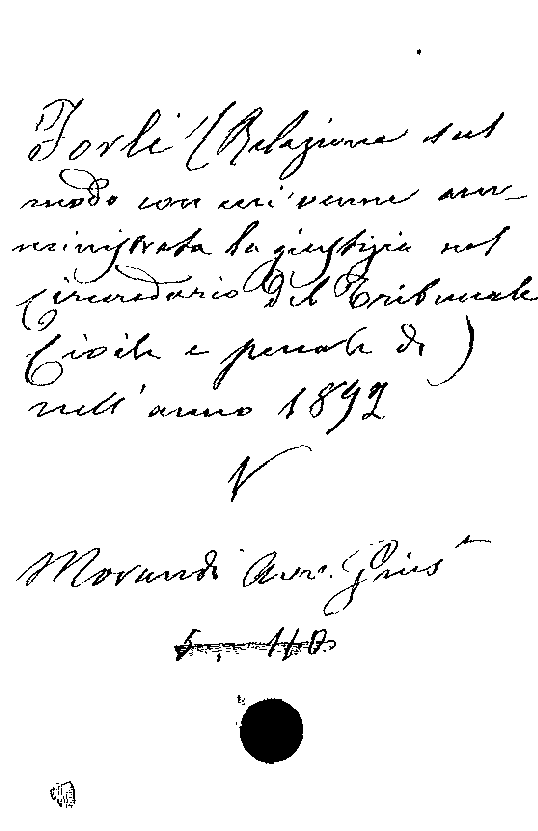 Forlì (Relazione sul
modo con cui venne am-
ministrata la giustizia nel
Circondario del Tribunale
Civile e penale di)
nell'anno 1892
V
Morandi Avv. Gius